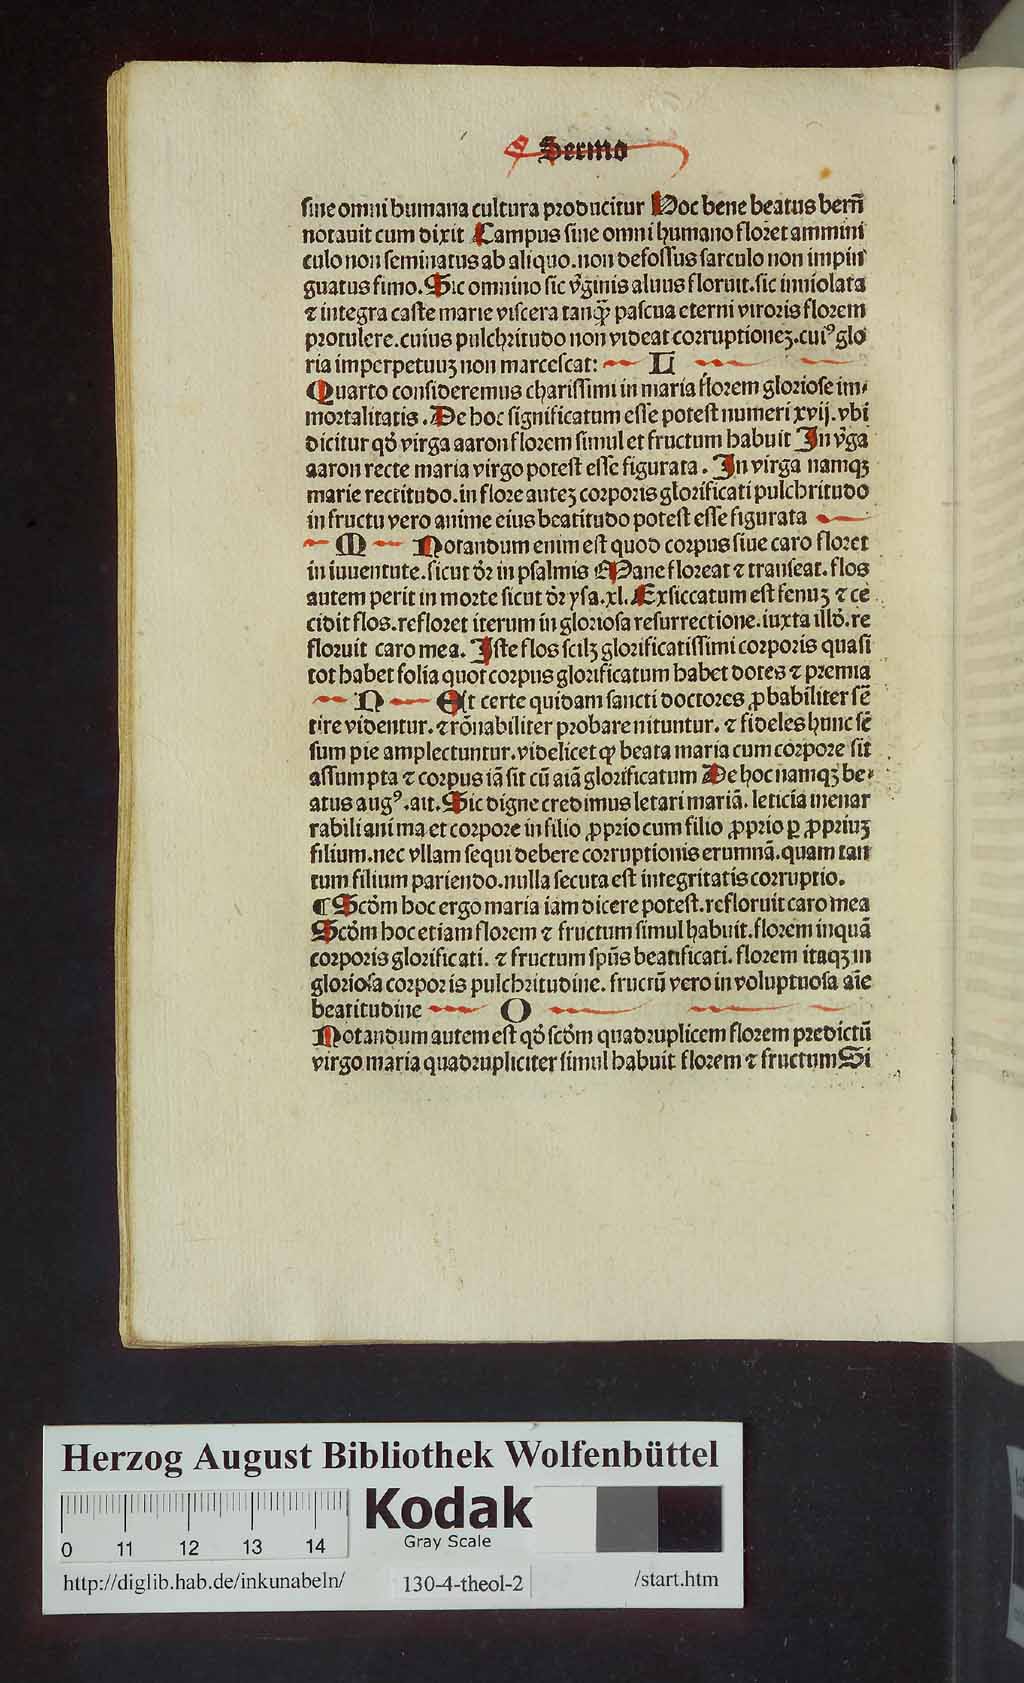 Sermo
sine omni humana cultura producitur Hoc bene beatus berñ
notauit cum dixit Campus sine omni humano floret ammini
culo non seminatus ab aliquo.non defossus sarculo non impin
guatus fimo.Sic omnino sic v̾ginis aluus floruit.sic inuiolata
⁊ integra caste marie viscera tanqȝ pascua eterni viroris florem
protulere.cuius pulchritudo non videat corruptioneȝ.cuiꝰ glo
ria imperpetuuȝ non marcescat: L
Quarto consideremus charissimi in maria florem gloriose im⸗
mortalitatis.De hoc significatum esse potest numeri xvij.vbi
dicitur qð virga aaron florem simul et fructum habuit In v̾ga
aaron recte maria virgo potest esse figurata. In virga namqȝ
marie rectitudo.in flore auteȝ corporis glorificati pulchritudo
in fructu vero anime eius beatitudo potest esse figurata
M Notandum enim est quod corpus siue caro floret
in iuuentute.sicut dr̄ in psalmis Mane floreat ⁊ transeat.flos
autem perit in morte sicut dr̄ ysa.xl.Exsiccatum est fenuȝ ⁊ ce
cidit flos.refloret iterum in gloriosa resurrectione.iuxta illð.re
floruit caro mea. Iste flos scilȝ glorificatissimi corporis quasi
tot habet folia quot corpus glorificatum habet dotes ⁊ premia
N Est certe quidam sancti doctores ꝓbabiliter sē
tire videntur.⁊ rōnabiliter probare nituntur.⁊ fideles hunc sē
sum pie amplectuntur.videlicet ꝙ beata maria cum corpore sit
assumpta ⁊ corpus iā sit cū aīa glorificatum De hoc namqȝ be⸗
atus augꝰ.ait.Sic digne credimus letari mariā. leticia inenar
rabili anima et corpore in filio ꝓprio cum filio ꝓprio ꝑ ꝓpriuȝ
filium.nec vllam sequi debere corruptionis erumnā.quam tan
tum filium pariendo.nulla secuta est integritatis corruptio.
¶ Scðm hoc ergo maria iam dicere potest.refloruit caro mea
Scðm hoc etiam florem ⁊ fructum simul habuit.florem inquā
corporis glorificati. ⁊ fructum spūs beatificati. florem itaqȝ in
gloriosa corporis pulchritudine. fructū vero in voluptuosa aīe
beatitudine O
Notandum autem est qð scðm quadruplicem florem predictū
virgo maria quadrupliciter simul habuit florem ⁊ fructum Si
Herzog August Bibliothek Wolfenbüttel
0 11 12 13 14
Kodak
Gray Scale
http://diglib.hab.de/inkunabeln/ 130-4-theol-2 /start.htm